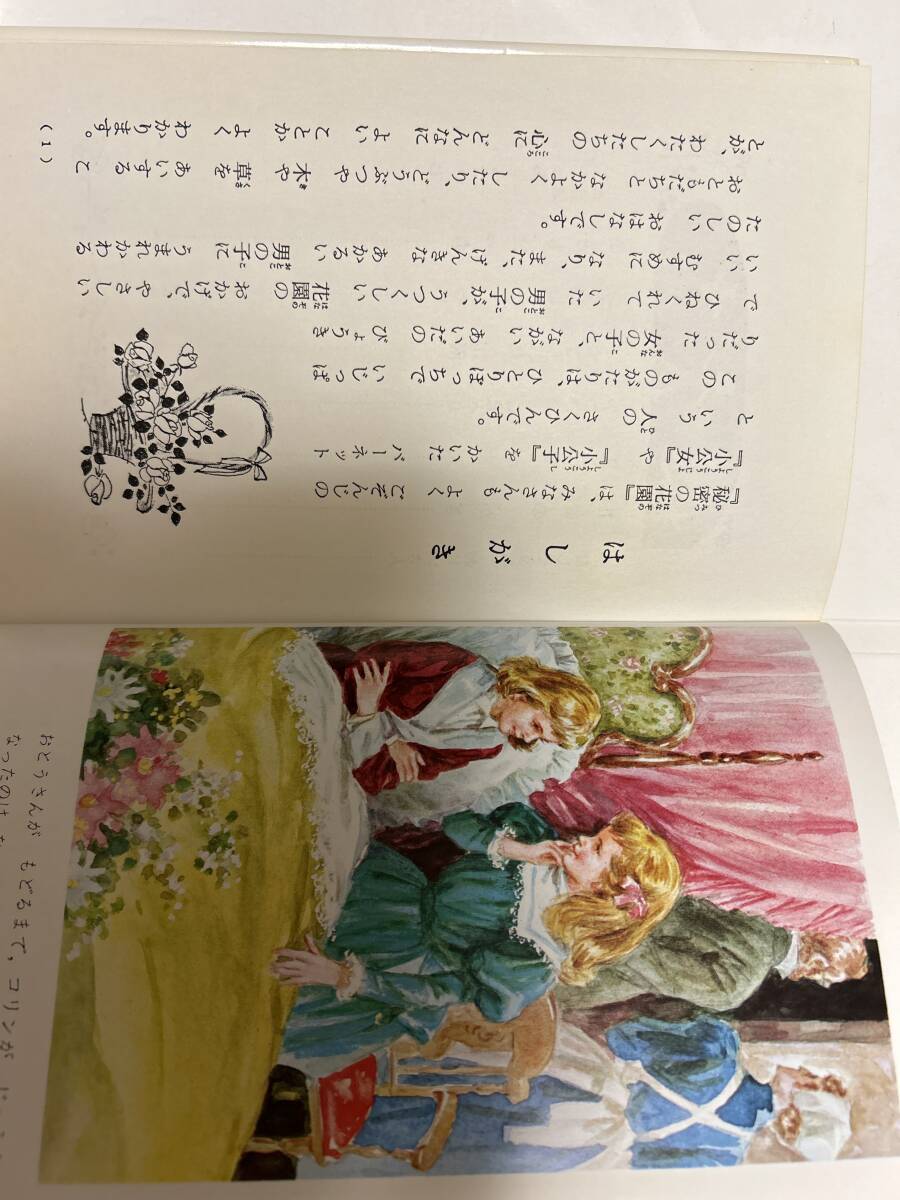 はしがき
『秘密の花園』は、みなさんも よく ごぞんじの
『小公女』や 『小公子』を かいた バーネット
という 人の さくひんです。
この ものがたりは、ひとりぼっちで いじっぱ
りだった 女の子と、ながい あいだの びょうき
で ひねくれて いた 男の子が、うつくしい 花園の おかげで、やさしい
いい むすめに なり、また、げんきな あかるい 男の子に うまれかわる
たのしい おはなしです。
おともだちと なかよく したり、どうぶつや 木や 草を あいする こ
とが、わたくしたちの 心に どんなに よい ことか よく わかります。
(1)
おとうさんが もどるまで、コリンが
なったのは